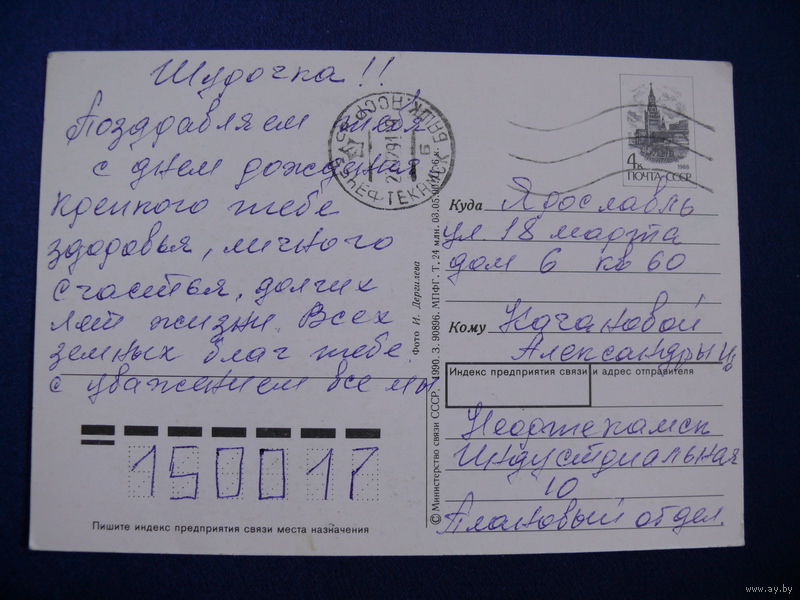 Шурочка!!
Поздравляем тебя
с днем рождения
крепкого тебе
здоровья, личного
счастья, долгих
лет жизни. Всех
земных благ тебе.
с уважением все мы
150017
Пишите индекс предприятия связи места назначения
© Министерство связи СССР. 1990. З. 90896. МПФГ. Т. 24 млн. 03.05.
Фото И. Дергилева
4к
1988
ПОЧТА СССР
Куда Ярославль
ул. 18 марта
дом 6 кв 60
Кому Качановой
Александры
Индекс предприятия связи и адрес отправителя
Нефтекамск
Индустриальная
10
Плановый отдел.
www.ay.by